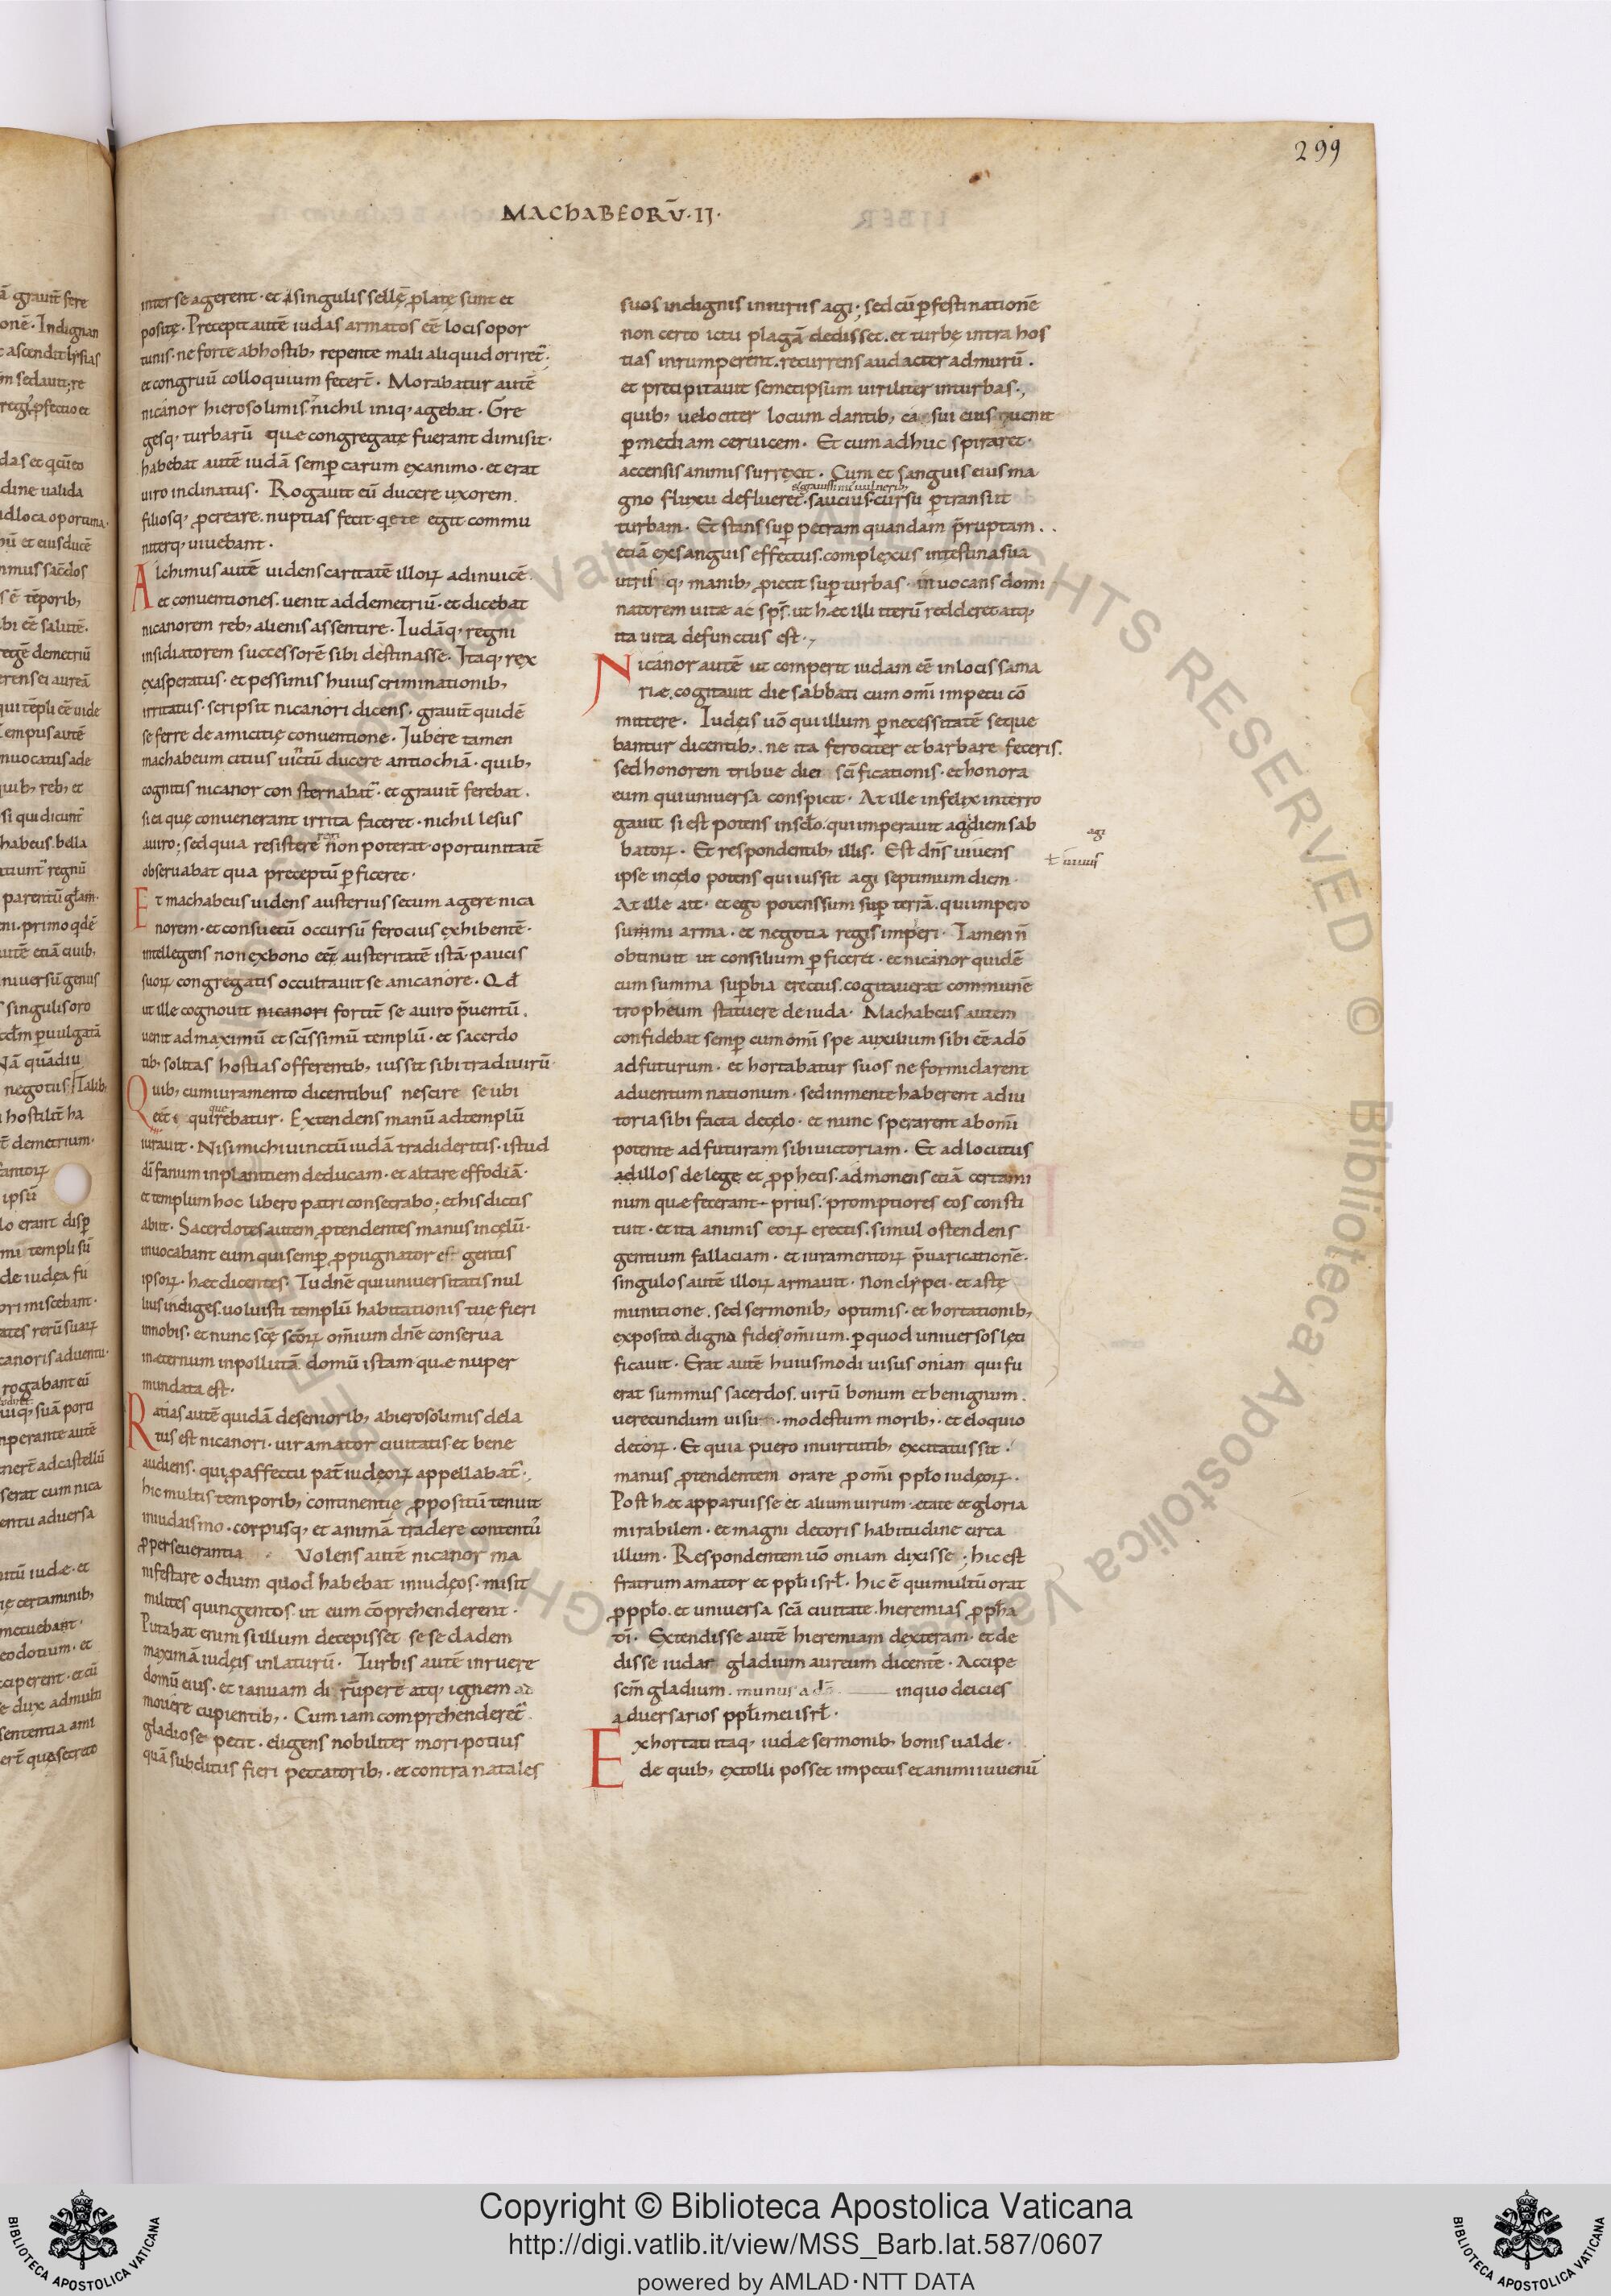 299
MACHABEORṼ·II·
inter se agerent· et a singulis sellę platę sunt et
positę· Precepit autē iudas armatos eē locis opor
tunis· ne forte ab hostib; repente mali aliquid oriret̃·
et congruū colloquium fecert̄· Morabatur autē
nicanor hierosolimis nichil iniq; agebat· Gre
gesq; turbarū quæ congregatę fuerant dimisit·
habebat autē iudā semp̄ carum ex animo· et erat
uiro inclinatus· Rogauit eū ducere uxorem
filiosq; procreare· nuptias fecit· egit commu
niterq; uiuebant·
Alchimus autē uidens caritatē illoꝝ ad inuicē
et conuentiones· uenit ad demetriū· et dicebat
nicanorem reb; alienis assentire· Iudāq; regni
insidiatorem successorē sibi destinasse· Itaq; rex
exasperatus· et pessimis huius criminationib;
irritatus· scripsit nicanori dicens· grauit̄ quidē
se ferre de amicitię conuentione· Iubere tamen
machabeum citius uinctū ducere antiochiā· quib;
cognitis nicanor consternabat̃· et grauit̄ ferebat·
si ea quę conuenerant irrita faceret· nichil lesus
a uiro; sed quia resistere non poterat· oportunitatē
obseruabat qua preceptū p̄ficeret·
Et machabeus uidens austerius secum agere nica
norem· et consuetū occursū ferocius exhibentē·
intellegens non ex bono eē austeritatē istā· paucis
suoꝝ congregatis occultauit se a nicanore· Qd̄
ut ille cognouit nicanori fortit̄ se a uiro p̄uentū·
uenit ad maximū et scīssimū templū· et sacerdo
tib; solitas hostias offerentib; iussit sibi tradi uirū·
Quib; cum iuramento dicentibus nescire se ubi
eēt qui querebatur· Extendens manū ad templū
iurauit· Nisi michi uinctū iudā tradideritis· istud
dī fanum in planitiem deducam· et altare effodiā·
et templum hoc libero patri consecrabo; et his dictis
abiit· Sacerdotes autem protendentes manus in cęlū·
inuocabant eum qui semp̄ propugnator est gentis
ipsoꝝ· hæc dicentes· Tu dn̄e qui uniuersitatis nul
lius indiges· uoluisti templū habitationis tuę fieri
in nobis· et nunc scē scōꝝ omīum dn̄e conserua
in æternum inpollutā domū istam quæ nuper
mundata est·
Ratias autē quidā de seniorib; ab ierosolimis dela
tus est nicanori· uir amator ciuitatis et bene
audiens· qui p affectu pat̄ iudęoꝝ appellabat̃·
hic multis temporib; continentię propositū tenuit
in iudaismo· corpusq; et animā tradere contentus
p perseuerantia Volens autē nicanor ma
nifestare odium quod habebat in iudęos· misit
milites quingentos· ut eum cōprehenderent·
Putabat enim si illum decepisset se se cladem
maximā iudęis inlaturū· Turbis autē inruere
domū eius· et ianuam dirūpere atq; ignem ad
mouere cupientib;· Cum iam comprehenderet̃
gladio se petit· eligens nobiliter mori potius
quā subditus fieri peccatorib;· et contra natales
suos indignis iniuriis agi; sed cū p̄ festinationē
non certo ictu plagā dedisset· et turbę intra hos
tias inrumperent· recurrens audacter ad murū·
et precipitauit semetipsum uiriliter in turbas·
quib; uelociter locum dantib; uenit
p̄ mediam ceruicem· Et cum adhuc spiraret·
accensis animis surrexit· Cum et sanguis eius ma
gno fluxu deflueret· saucius cursu p̄transiit
turbam· Et stans sup̄ petram quandam p̄ruptam·
etiā exsanguis effectus· complexus intestina sua
utrisq; manib; proiecit sup̄ turbas· inuocans domi
natorem uitæ ac sp̄s· ut hæc illi iterū redderet atq;
ita uita defunctus est·
Nicanor autē ut comperit iudam eē in locis sama
riæ· cogitauit die sabbati cum omī impetu cō
mittere· Iudęis uō qui illum p̄ necessitatē seque
bantur dicentib;· ne ita ferociter et barbare feceris·
sed honorem tribue diei scīficationis· et honora
eum qui uniuersa conspicit· At ille infelix interro
gauit si est potens in celo· qui imperauit agi diem sab
batoꝝ· Et respondentib; illis· Est dn̄s uiuens
ipse in cęlo potens qui iussit agi septimum diem·
At ille ait· et ego potens sum sup̄ terrā· qui impero
summi arma· et negotia regis imperi· Tamen n̄
obtinuit ut consilium p̄ficeret· et nicanor quidē
cum summa sup̄bia erectus· cogitauerat communē
tropheum statuere de iuda· Machabeus autem
confidebat semp̄ cum omī spe auxilium sibi eē a dō
adfuturum· et hortabatur suos ne formidarent
aduentum nationum· sed in mente haberent adiu
toria sibi facta de cęlo· et nunc sperarent ab omī
potente adfuturam sibi uictoriam· Et adlocutus
ad illos de lege et prophetis· admonens etiā certami
num quæ fecerant prius· promptiores eos consti
tuit· et ita animis eoꝝ erectis· simul ostendens
gentium fallaciam· et iuramentoꝝ p̄uaricationē·
singulos autē illoꝝ armauit· Non clypei· et astę
munitione· sed sermonib; optimis· et hortationib;
exposito digno fide somīum· p̄ quod uniuersos lęti
ficauit· Erat autē huiusmodi uisus onian qui fu
erat summus sacerdos· uirū bonum et benignum·
uerecundum uisu· modestum morib;· et eloquio
decoꝝ· Et quia puero in uirtutib; excitatus sit·
manus protendentem orare p omī pplo iudęoꝝ·
Post hæc apparuisse et alium uirum· etate et gloria
mirabilem· et magni decoris habitudine circa
illum· Respondentem uō oniam dixisse; hic est
fratrum amator et ppli isrl· hic ē qui multū orat
p pplo· et uniuersa scā ciuitate· hieremias propha
dī· Extendisse autē hieremiam dexteram· et de
disse iudæ gladium aureum dicentē· Accipe
scm̄ gladium· munus a dō in quo deicies
aduersarios ppli mei isrl·
Exhortati itaq; iudæ sermonib; bonis ualde·
de quib; extolli posset impetus et animi iuuenū
agi
Copyright © Biblioteca Apostolica Vaticana
http://digi.vatlib.it/view/MSS_Barb.lat.587/0607
powered by AMLAD·NTT DATA